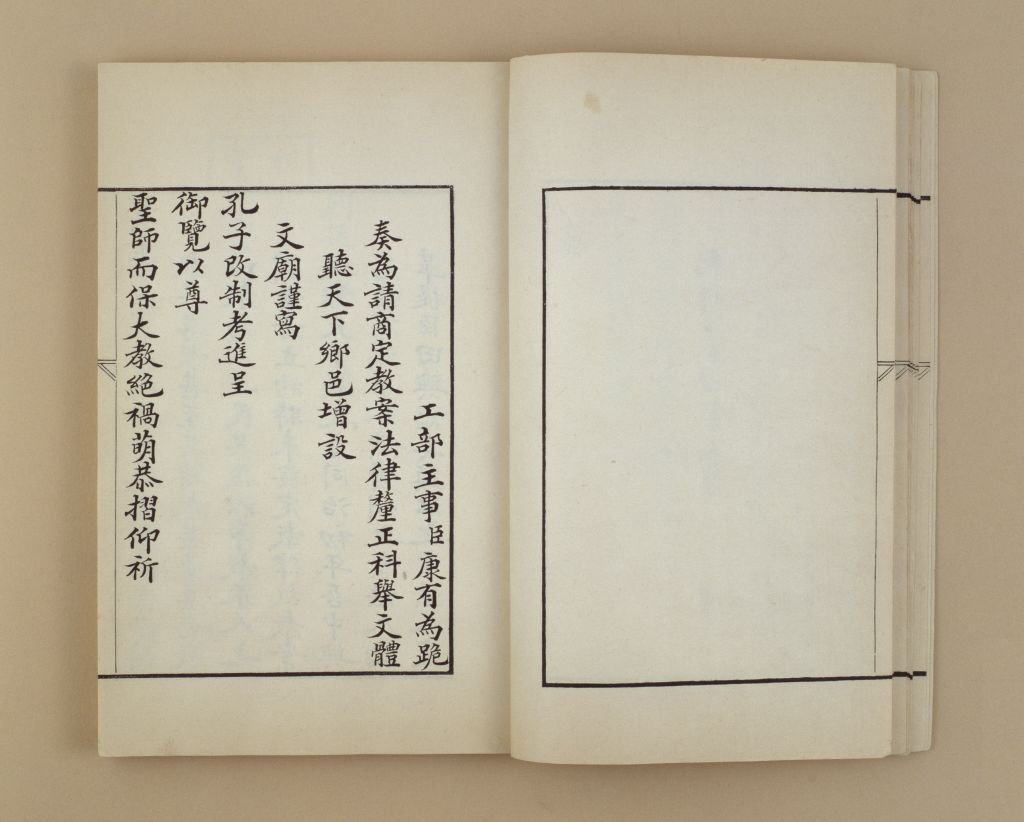 工部主事臣康有為跪
奏為請商定教案法律釐正科舉文體
聽天下鄉邑增設
文廟謹寫
孔子改制考進呈
御覽以尊
聖師而保大教絕禍萌恭摺仰祈